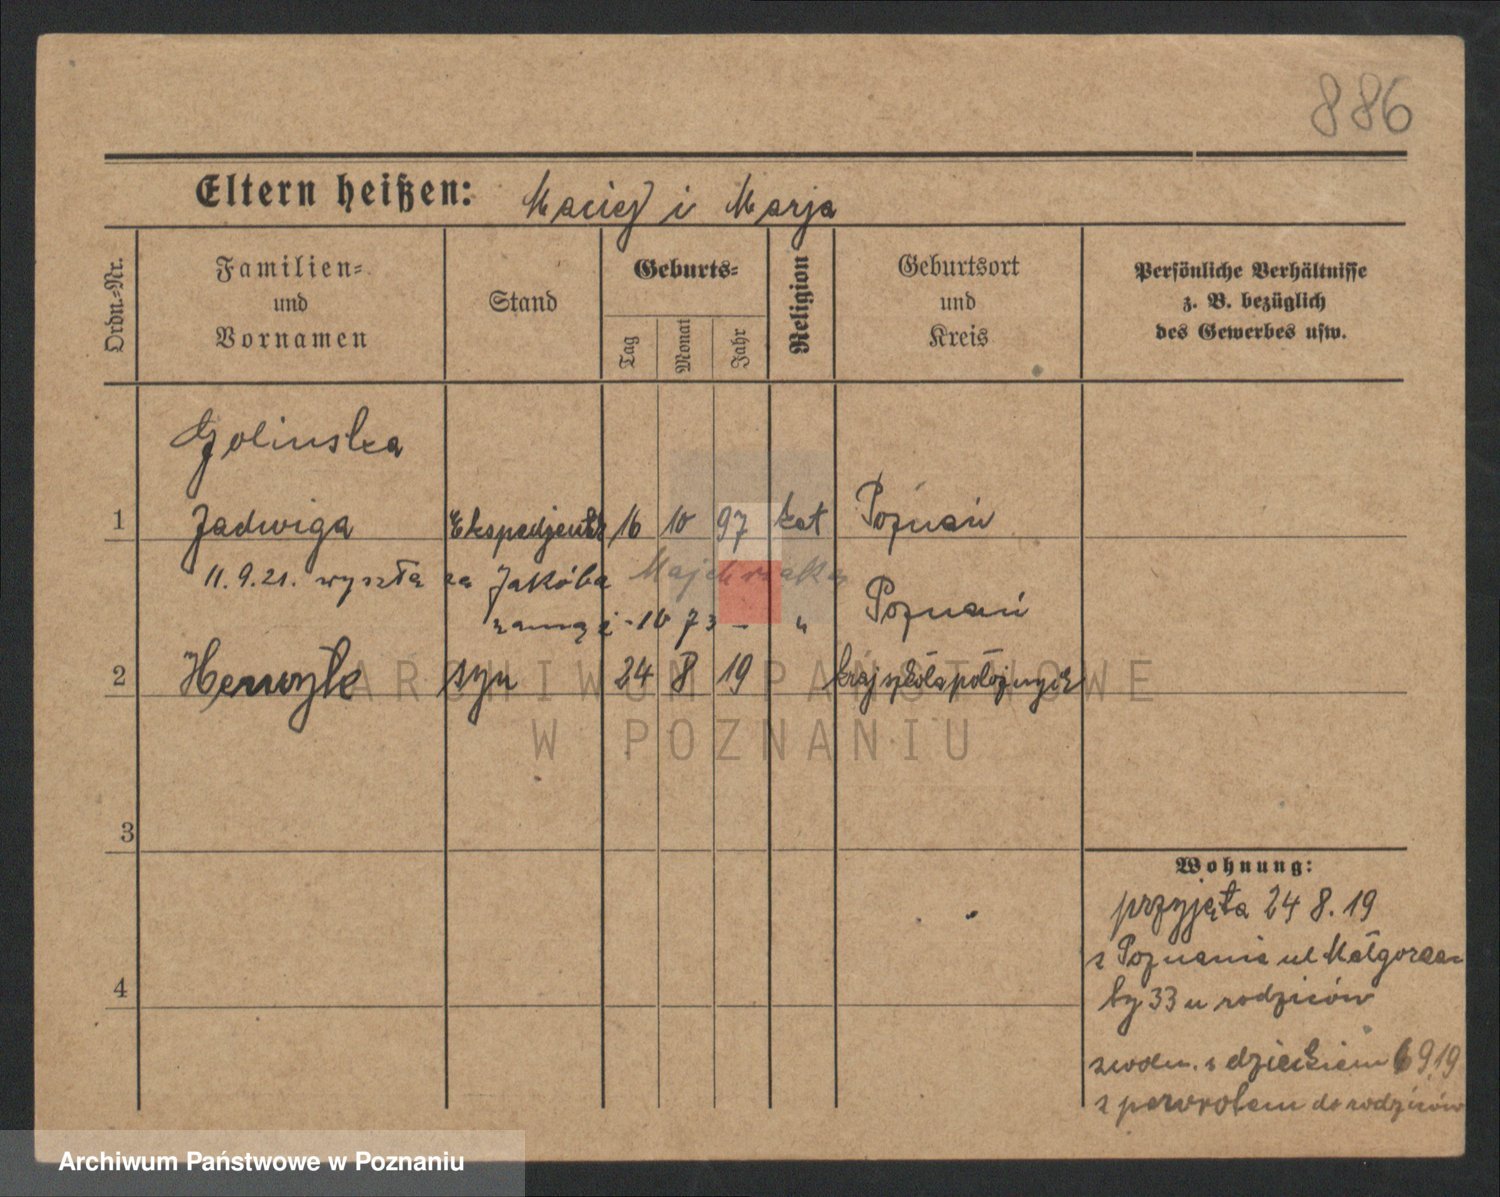 886
Eltern heißen: Maciej i Marja
Ordn=Nr.
Familien=
und
Vornamen
Stand
Geburts=
Tag
Monat
Jahr
Religion
Geburtsort
und
Kreis
Persönliche Verhältnisse
z. B. bezüglich
des Gewerbes usw.
Golinska
1 Jadwiga Ekspedjentk 16 10 97 kat Poznań
11.9.21. wyszła za Jakóba Majchrzaka
zamąż - 10 73 - " Poznań
2 Henryk syn 24 8 19 kraj szkoła położnych
ARCHIWUM PAŃSTWOWE
W POZNANIU
3
4
Wohnung:
przyjęta 24 8. 19
z Poznania ul Małgorza
by 33 u rodziców
zwoln. z dzieckiem 6 9.19
z powrotem do rodziców
Archiwum Państwowe w Poznaniu